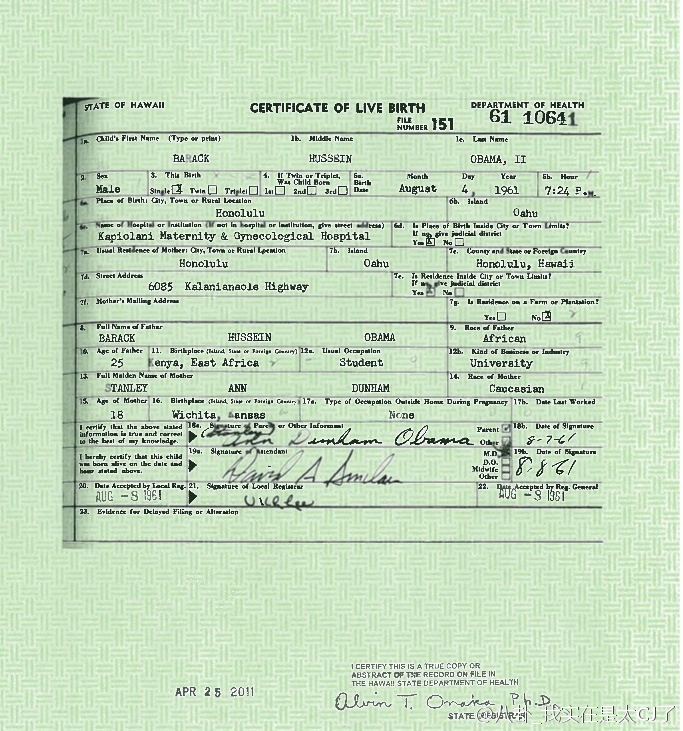 STATE OF HAWAII CERTIFICATE OF LIVE BIRTH DEPARTMENT OF HEALTH
FILE NUMBER 151 61 10641
1a. Child's First Name (Type or print) 1b. Middle Name 1c. Last Name
BARACK HUSSEIN OBAMA, II
2. Sex 3. This Birth 4. If Twin or Triplet, Was Child Born 5a. Birth Date Month Day Year 5b. Hour
Male Single X Twin Triplet 1st 2nd 3rd August 4, 1961 7:24 P.M.
6a. Place of Birth: City, Town or Rural Location 6b. Island
Honolulu Oahu
6c. Name of Hospital or Institution (If not in hospital or institution, give street address) 6d. Is Place of Birth Inside City or Town Limits? If no, give judicial district
Kapiolani Maternity & Gynecological Hospital Yes X No
7a. Usual Residence of Mother: City, Town or Rural Location 7b. Island 7c. County and State or Foreign Country
Honolulu Oahu Honolulu, Hawaii
7d. Street Address 7e. Is Residence Inside City or Town Limits? If no, give judicial district
6085 Kalanianaole Highway Yes X No
7f. Mother's Mailing Address 7g. Is Residence on a Farm or Plantation?
Yes No X
8. Full Name of Father 9. Race of Father
BARACK HUSSEIN OBAMA African
10. Age of Father 11. Birthplace (Island, State or Foreign Country) 12a. Usual Occupation 12b. Kind of Business or Industry
25 Kenya, East Africa Student University
13. Full Maiden Name of Mother 14. Race of Mother
STANLEY ANN DUNHAM Caucasian
15. Age of Mother 16. Birthplace (Island, State or Foreign Country) 17a. Type of Occupation Outside Home During Pregnancy 17b. Date Last Worked
18 Wichita, Kansas None
I certify that the above stated information is true and correct to the best of my knowledge. 18a. Signature of Parent or Other Informant Parent Other 18b. Date of Signature
(Stanley) Ann Dunham Obama 8-7-61
I hereby certify that this child was born alive on the date and hour stated above. 19a. Signature of Attendant M.D. D.O. Midwife Other 19b. Date of Signature
David A Sinclair 8-8-61
20. Date Accepted by Local Reg. 21. Signature of Local Registrar 22. Date Accepted by Reg. General
AUG -8 1961 AUG -8 1961
23. Evidence for Delayed Filing or Alteration
APR 25 2011
I CERTIFY THIS IS A TRUE COPY OR
ABSTRACT OF THE RECORD ON FILE IN
THE HAWAII STATE DEPARTMENT OF HEALTH
Alvin T. Onaka, Ph.D.
STATE REGISTRAR
@八卦_我实在是太CJ了